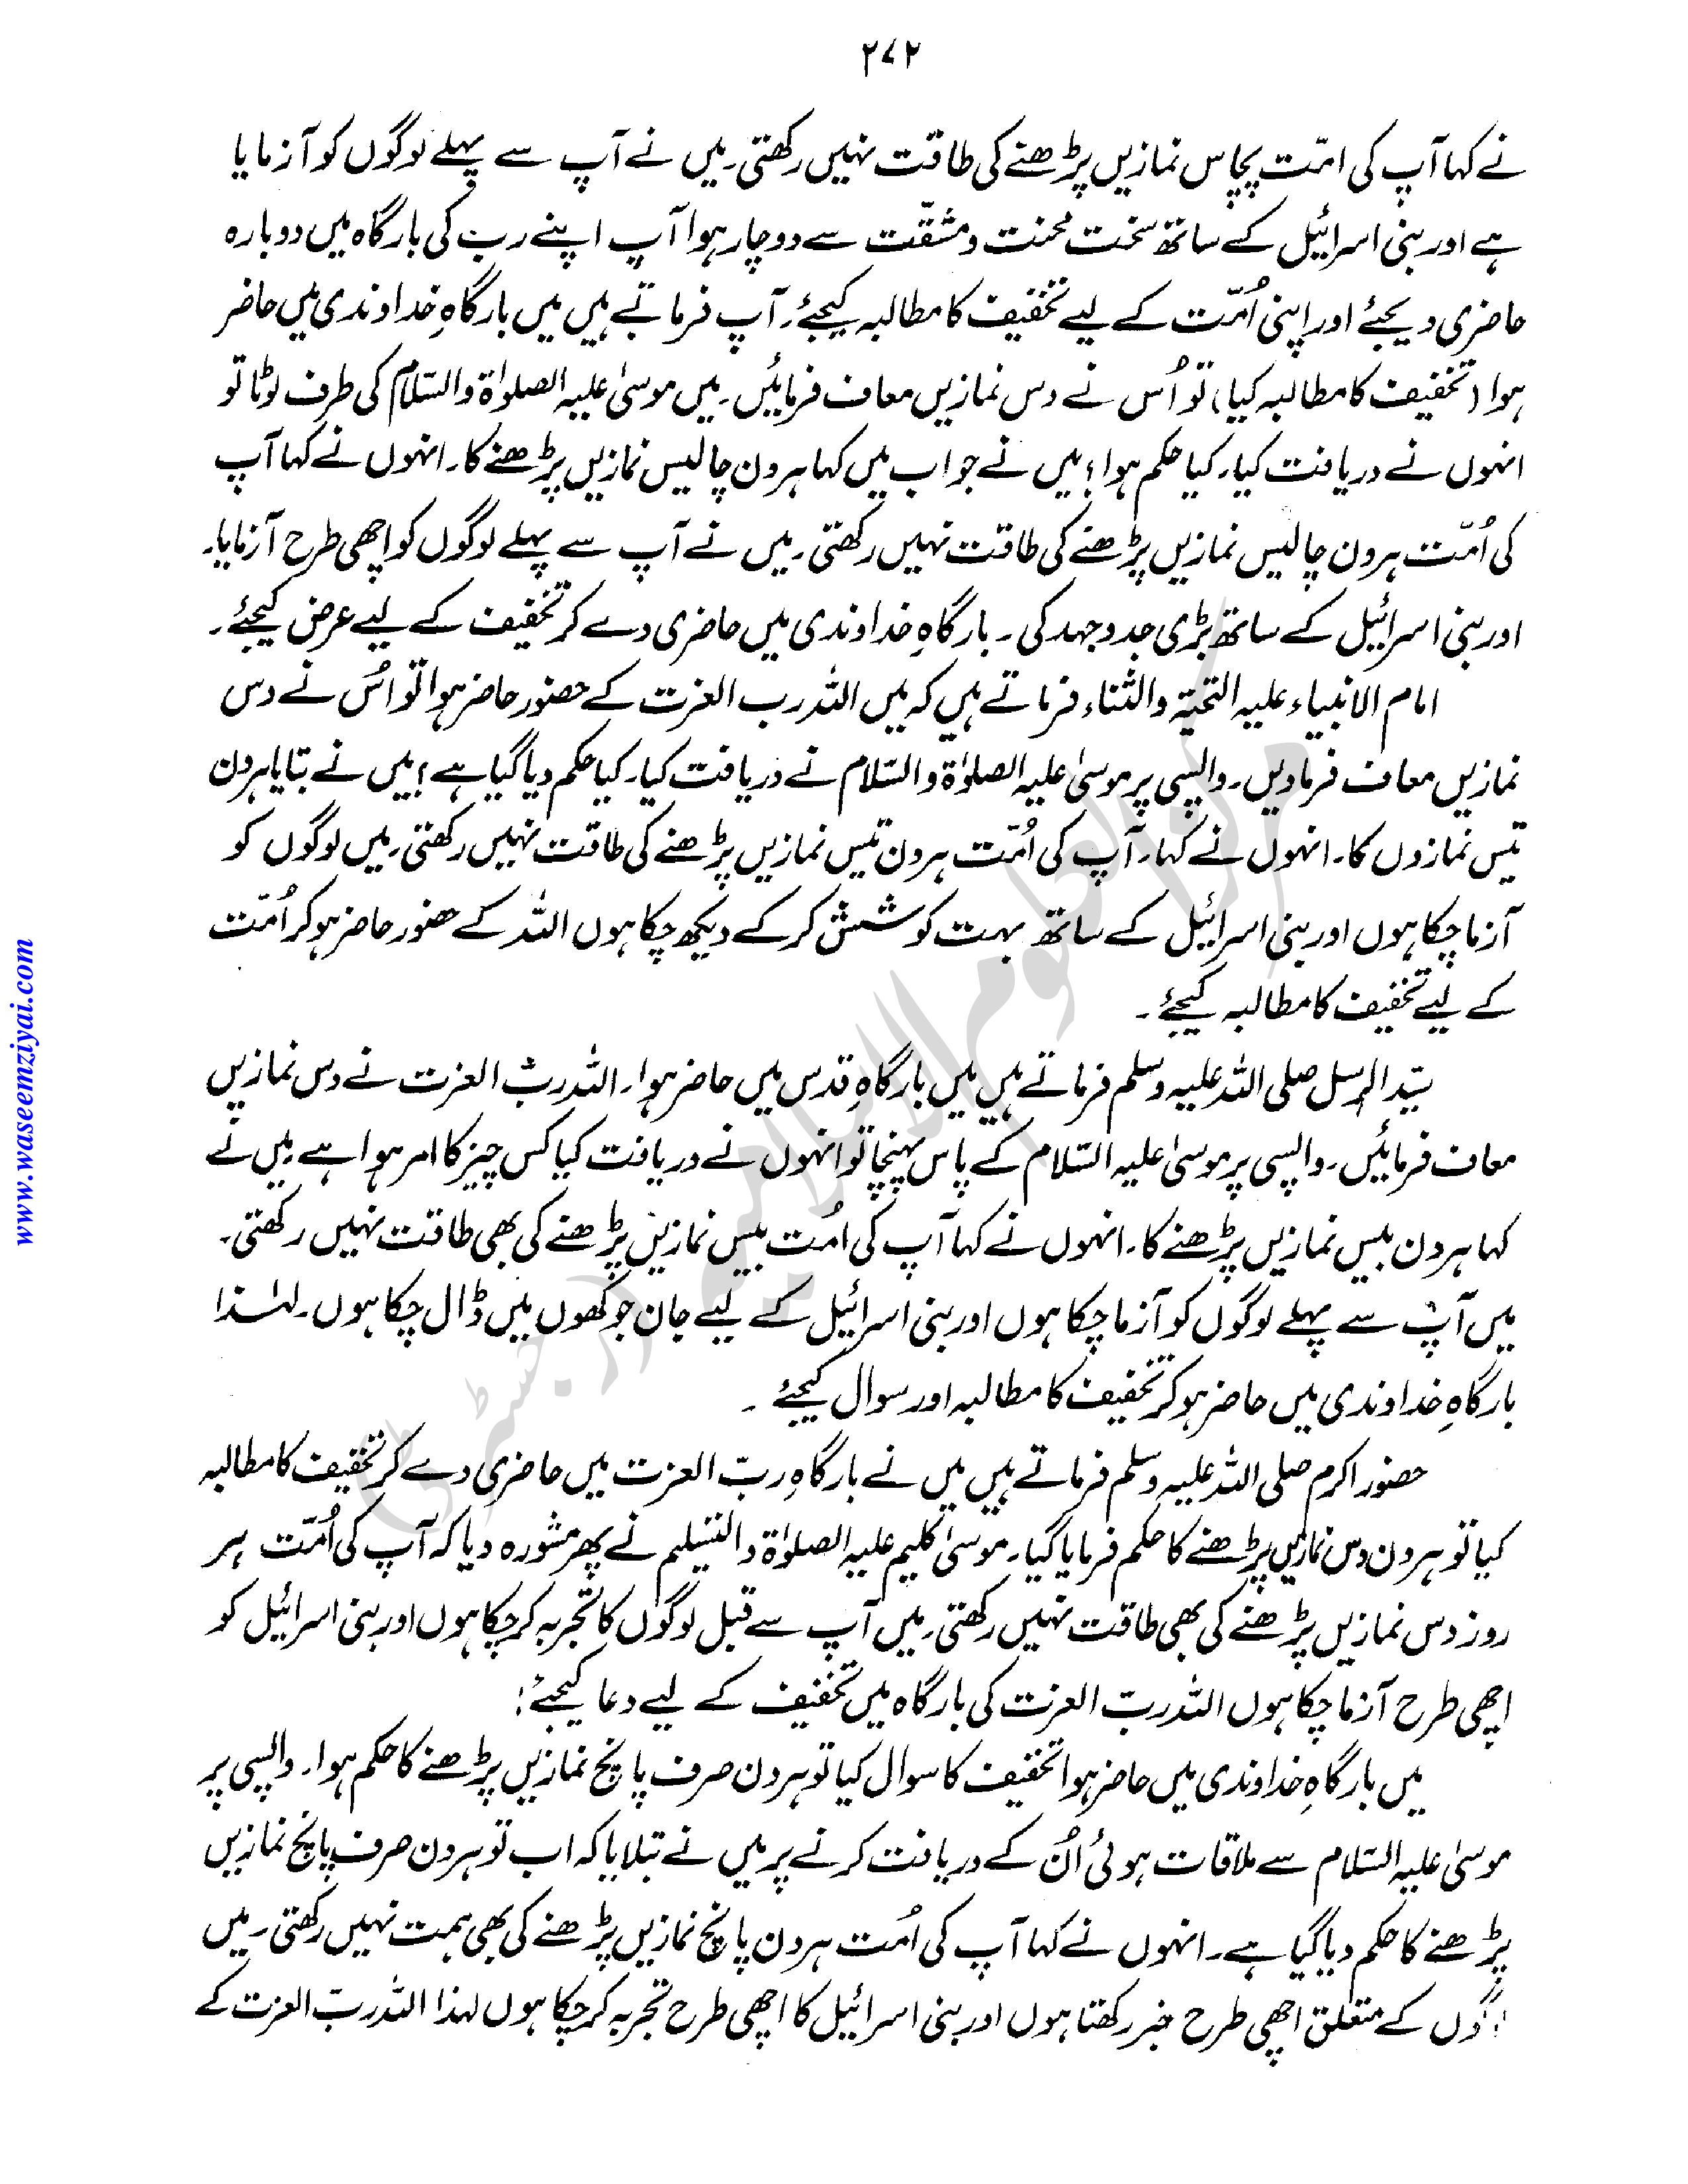 ۲۷۲
نے کہا آپ کی امّت پچاس نمازیں پڑھنے کی طاقت نہیں رکھتی۔ میں نے آپ سے پہلے لوگوں کو آزمایا
ہے اور بنی اسرائیل کے ساتھ سخت محنت و مشقّت سے دوچار ہوا آپ اپنے رب کی بارگاہ میں دوبارہ
حاضری دیجئے اور اپنی اُمّت کے لیے تخفیف کا مطالبہ کیجئے۔ آپ فرماتے ہیں میں بارگاہِ خداوندی میں حاضر
ہوا (تخفیف کا مطالبہ کیا) تو اُس نے دس نمازیں معاف فرمائیں۔ میں موسیٰ علیہ الصلوٰۃ والسّلام کی طرف لوٹا تو
انہوں نے دریافت کیا۔ کیا حکم ہوا؟ میں نے جواب میں کہا ہر دن چالیس نمازیں پڑھنے کا۔ انہوں نے کہا آپ
کی اُمّت ہر دن چالیس نمازیں پڑھنے کی طاقت نہیں رکھتی۔ میں نے آپ سے پہلے لوگوں کو اچھی طرح آزمایا۔
اور بنی اسرائیل کے ساتھ بڑی جدوجہد کی۔ بارگاہِ خداوندی میں حاضری دے کر تخفیف کے لیے عرض کیجئے۔
امام الانبیاء علیہ التحیّۃ والثناء فرماتے ہیں کہ میں اللہ رب العزت کے حضور حاضر ہوا تو اُس نے دس
نمازیں معاف فرما دیں۔ واپسی پر موسیٰ علیہ الصلوٰۃ والسّلام نے دریافت کیا۔ کیا حکم دیا گیا ہے؟ میں نے بتایا ہر دن
تیس نمازوں کا۔ انہوں نے کہا۔ آپ کی اُمّت ہر دن تیس نمازیں پڑھنے کی طاقت نہیں رکھتی۔ میں لوگوں کو
آزما چکا ہوں اور بنی اسرائیل کے ساتھ بہت کوشش کر کے دیکھ چکا ہوں اللہ کے حضور حاضر ہو کر اُمّت
کے لیے تخفیف کا مطالبہ کیجئے۔
سیّد الرسل صلی اللہ علیہ وسلم فرماتے ہیں میں بارگاہِ قدس میں حاضر ہوا۔ اللہ ربّ العزت نے دس نمازیں
معاف فرمائیں۔ واپسی پر موسیٰ علیہ السّلام کے پاس پہنچا تو انہوں نے دریافت کیا کس چیز کا امر ہوا ہے میں نے
کہا ہر دن بیس نمازیں پڑھنے کا۔ انہوں نے کہا آپ کی اُمت بیس نمازیں پڑھنے کی بھی طاقت نہیں رکھتی۔
میں آپ سے پہلے لوگوں کو آزما چکا ہوں اور بنی اسرائیل کے لیے جان جوکھوں میں ڈال چکا ہوں۔ لہٰذا
بارگاہِ خداوندی میں حاضر ہو کر تخفیف کا مطالبہ اور سوال کیجئے۔
حضور اکرم صلی اللہ علیہ وسلم فرماتے ہیں میں نے بارگاہِ ربّ العزت میں حاضری دے کر تخفیف کا مطالبہ
کیا تو ہر دن دس نمازیں پڑھنے کا حکم فرمایا گیا۔ موسیٰ کلیم علیہ الصلوٰۃ والتسلیم نے پھر مشورہ دیا کہ آپ کی اُمّت ہر
روز دس نمازیں پڑھنے کی بھی طاقت نہیں رکھتی۔ میں آپ سے قبل لوگوں کا تجربہ کر چکا ہوں اور بنی اسرائیل کو
اچھی طرح آزما چکا ہوں اللہ ربّ العزت کی بارگاہ میں تخفیف کے لیے دعا کیجئے؛
میں بارگاہِ خداوندی میں حاضر ہوا تخفیف کا سوال کیا تو ہر دن صرف پانچ نمازیں پڑھنے کا حکم ہوا۔ واپسی پر
موسیٰ علیہ السّلام سے ملاقات ہوئی اُن کے دریافت کرنے پر میں نے بتلایا کہ اب تو ہر دن صرف پانچ نمازیں
پڑھنے کا حکم دیا گیا ہے۔ انہوں نے کہا آپ کی اُمت ہر دن پانچ نمازیں پڑھنے کی بھی ہمت نہیں رکھتی۔ میں
لوگوں کے متعلق اچھی طرح خبر رکھتا ہوں اور بنی اسرائیل کا اچھی طرح تجربہ کر چکا ہوں لہذا اللہ ربّ العزت کے
www.waseemziyai.com
مرکز العلوم الاسلامیہ (رجسٹرڈ)